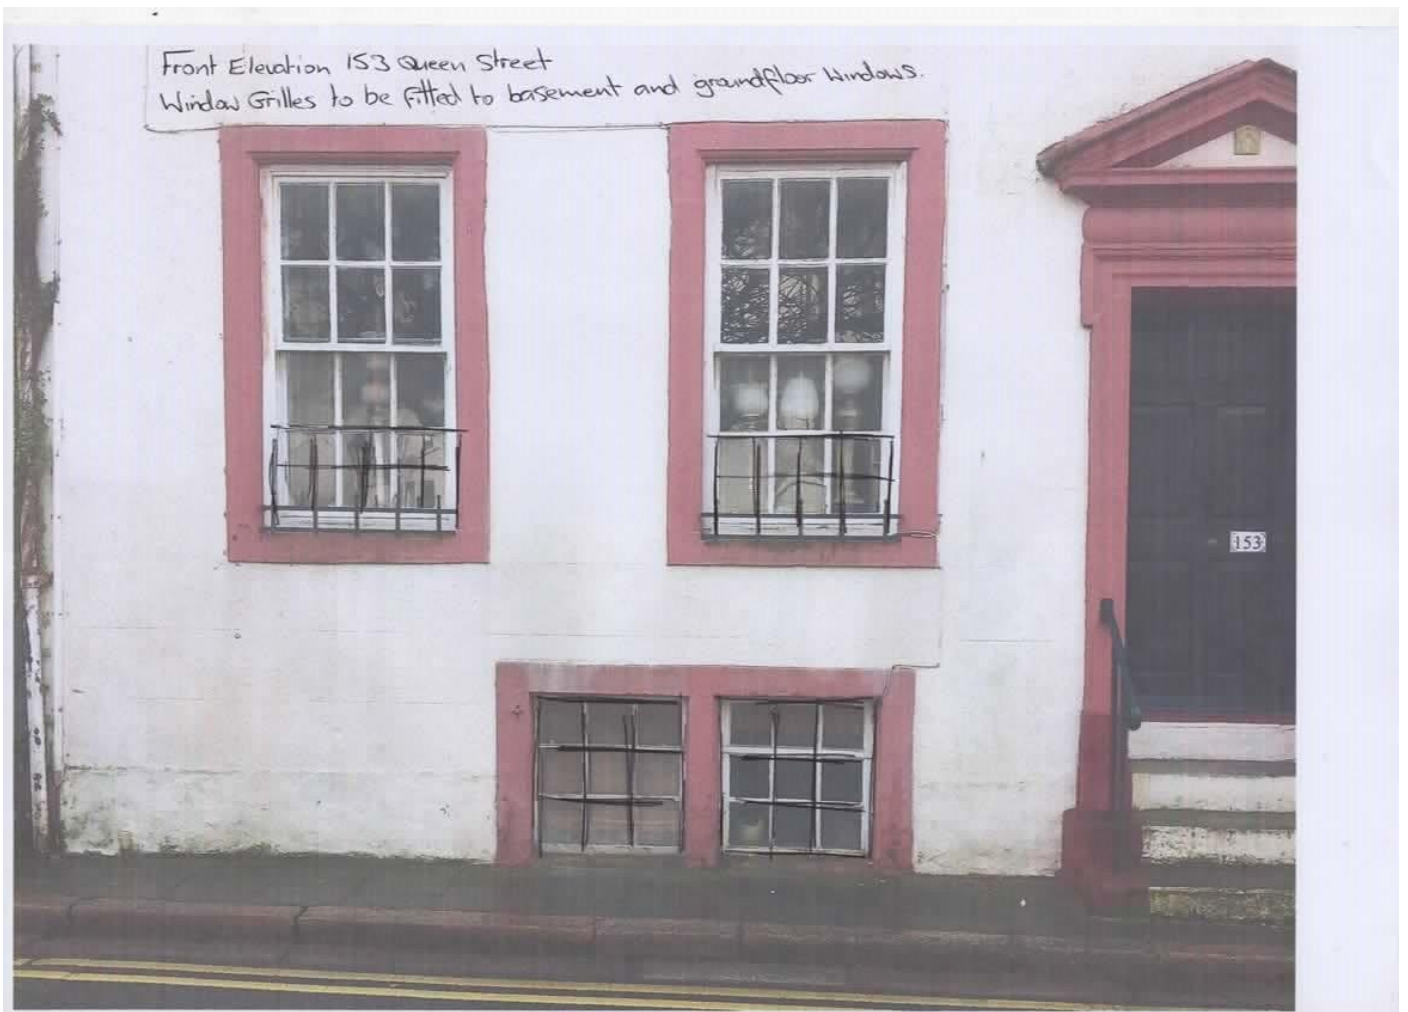 Front Elevation 153 Queen Street
Window Grilles to be fitted to basement and groundfloor windows.
153